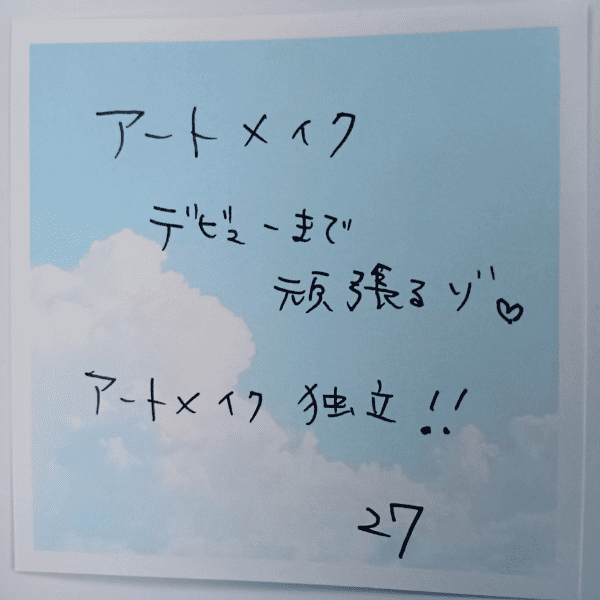 アートメイク
デビューまで
頑張るゾ♡
アートメイク 独立!!
27